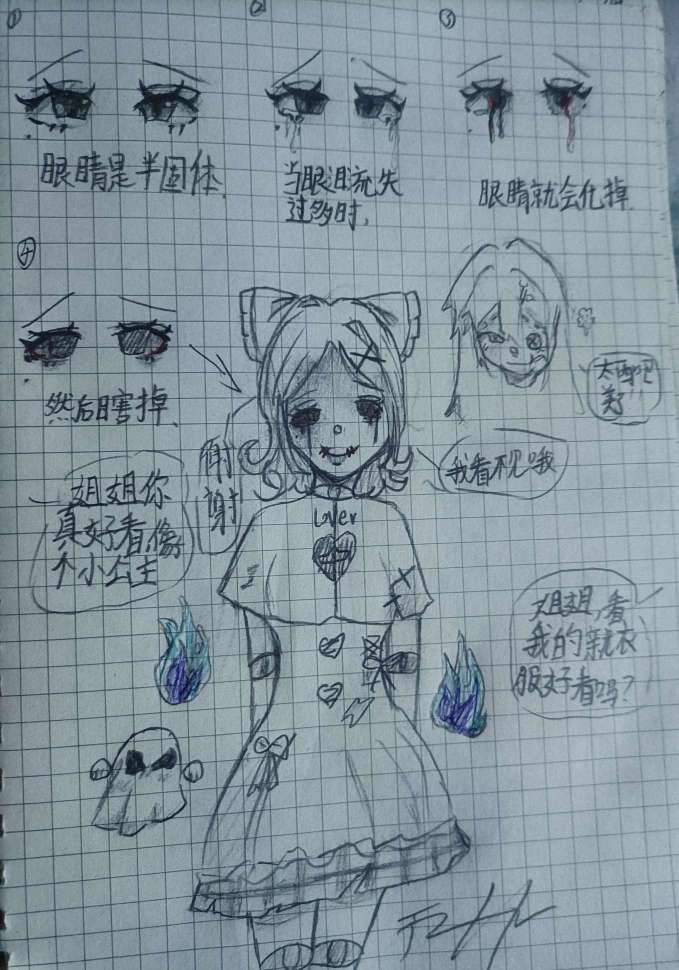 ①
②
③
眼睛是半固体.
当眼泪流失
过多时,
眼睛就会化掉.
④
然后瞎掉.
谢
谢
我看不见哦
姐姐你
真好看,像
个小公主
Lover
姐姐,看
我的新衣
服好看吗?